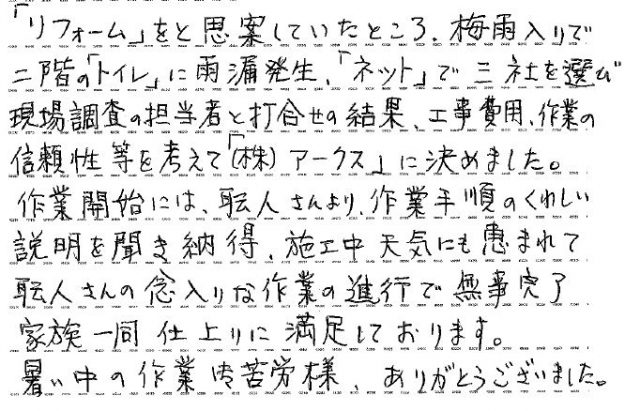 「リフォーム」をと思案していたところ、梅雨入りで
二階の「トイレ」に雨漏発生、「ネット」で三社を選び
現場調査の担当者と打合せの結果、工事費用、作業の
信頼性等を考えて「(株)アークス」に決めました。
作業開始には、職人さんより、作業手順のくわしい
説明を聞き納得、施工中天気にも恵まれて
職人さんの念入りな作業の進行で無事完了
家族一同仕上りに満足しております。
暑い中の作業御苦労様、ありがとうございました。